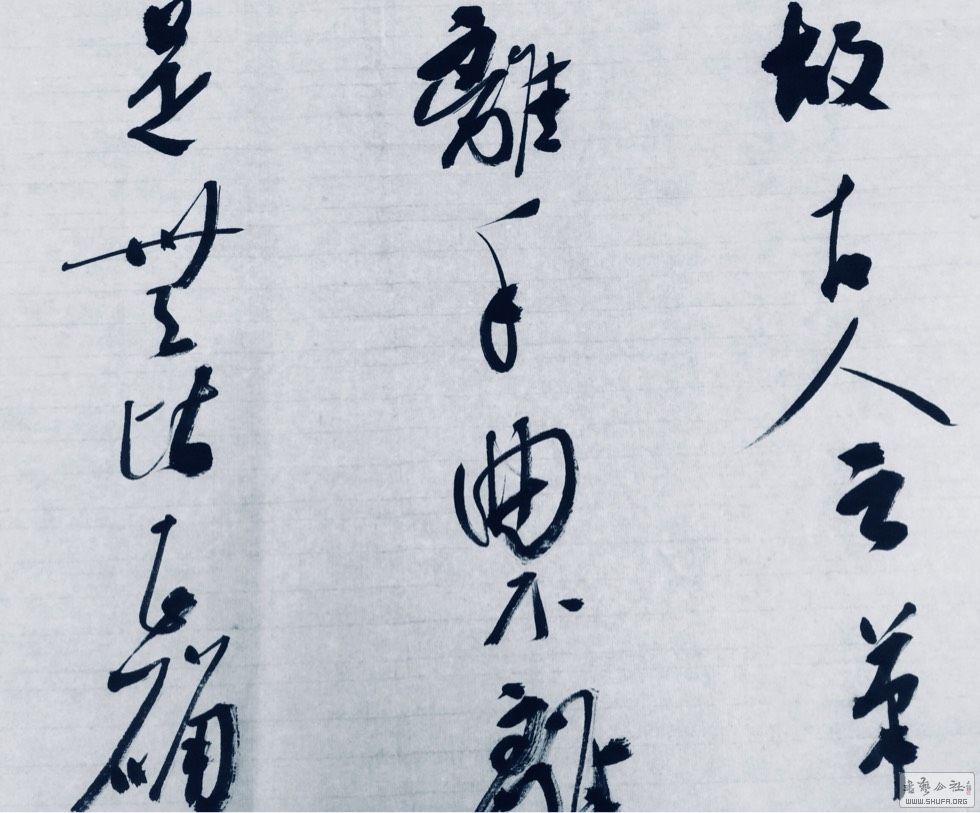 故古人云筆
離手曲不離
是無法真確
書藝公社
WWW.SHUFA.ORG